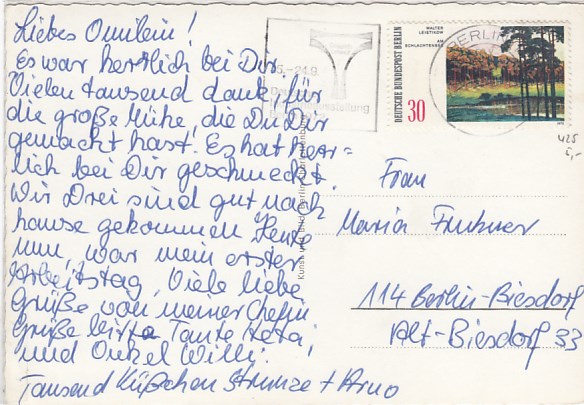 Liebes Omilein!
Es war herrlich bei Dir.
Vielen tausend dank, für
die große Mühe, die Du Dir
gemacht hast. Es hat
lich bei Dir geschmeckt.
Wir Drei sind gut nach
hause gekommen. Heute
nun, war mein erster
Arbeitstag. Viele liebe
Grüße von meiner Chefin
Grüße bitte Tante Herta,
und Onkel Willi.
Tausend Küßchen + Arno
5.-24.9.
WALTER
LEISTIKOW
AM
SCHLACHTENSEE
DEUTSCHE BUNDESPOST BERLIN
30
BERLIN
425
5,-
Frau
Maria
114 Berlin-Biesdorf
Alt-Biesdorf 33